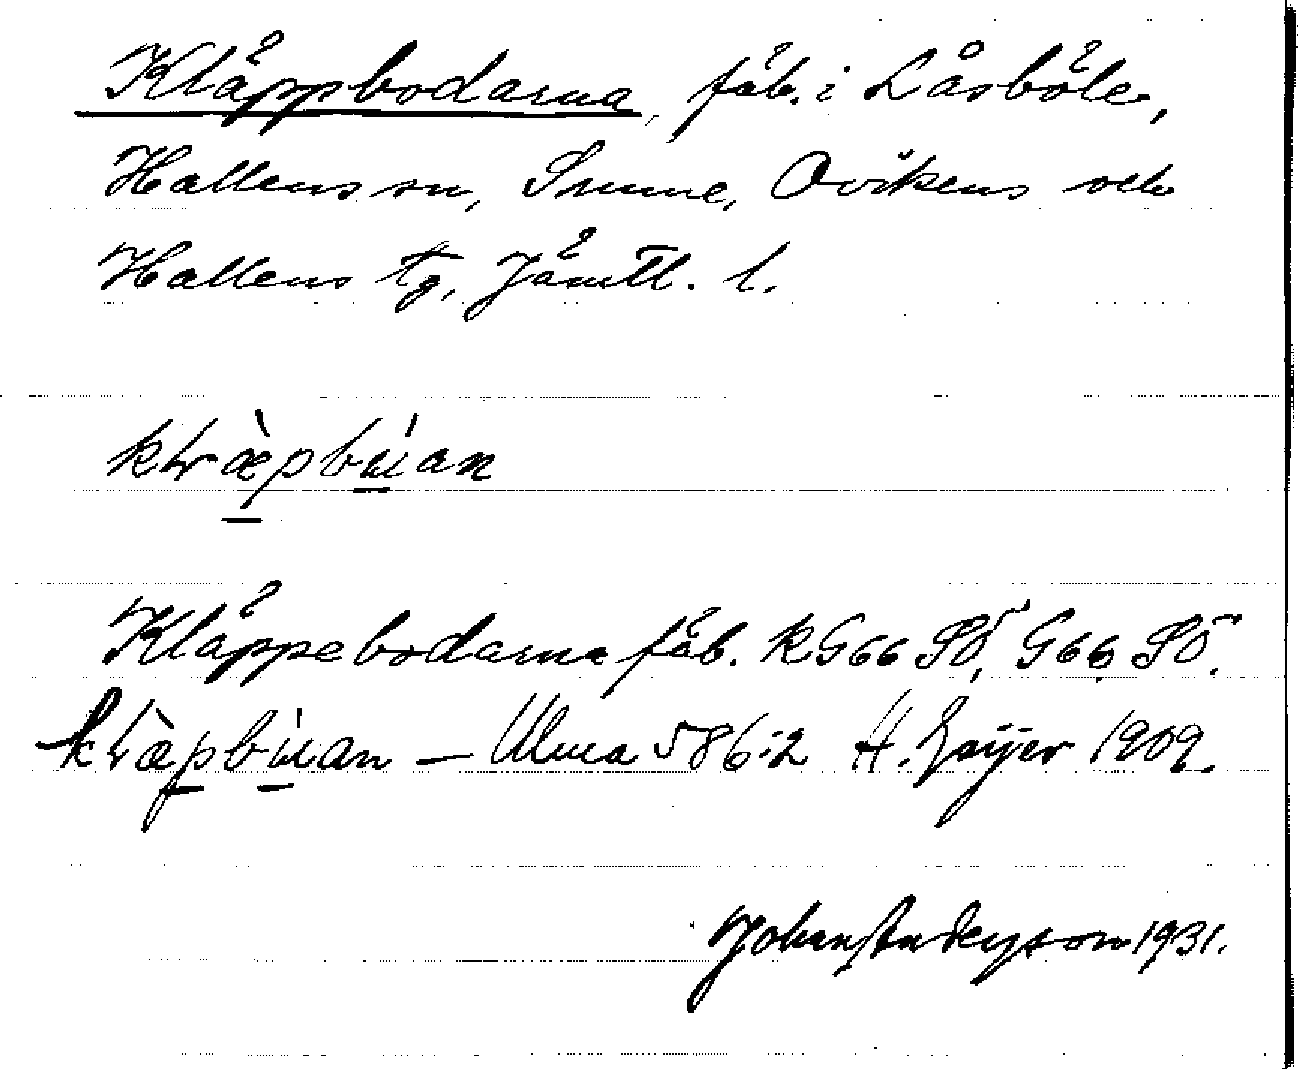 Kläppbodarna, fäb. i Låsböle,
Hallens sn, Sunne, Ovikens och
Hallens tg, Jämtl. l.
klræ̀pbùan
Kläppebodarna fäb. KG66 SÖ, G66 SÖ.
klræ̀pbu̇an – Ulma 586:2 H. Geijer 1909.
Johan Anderson 1931.